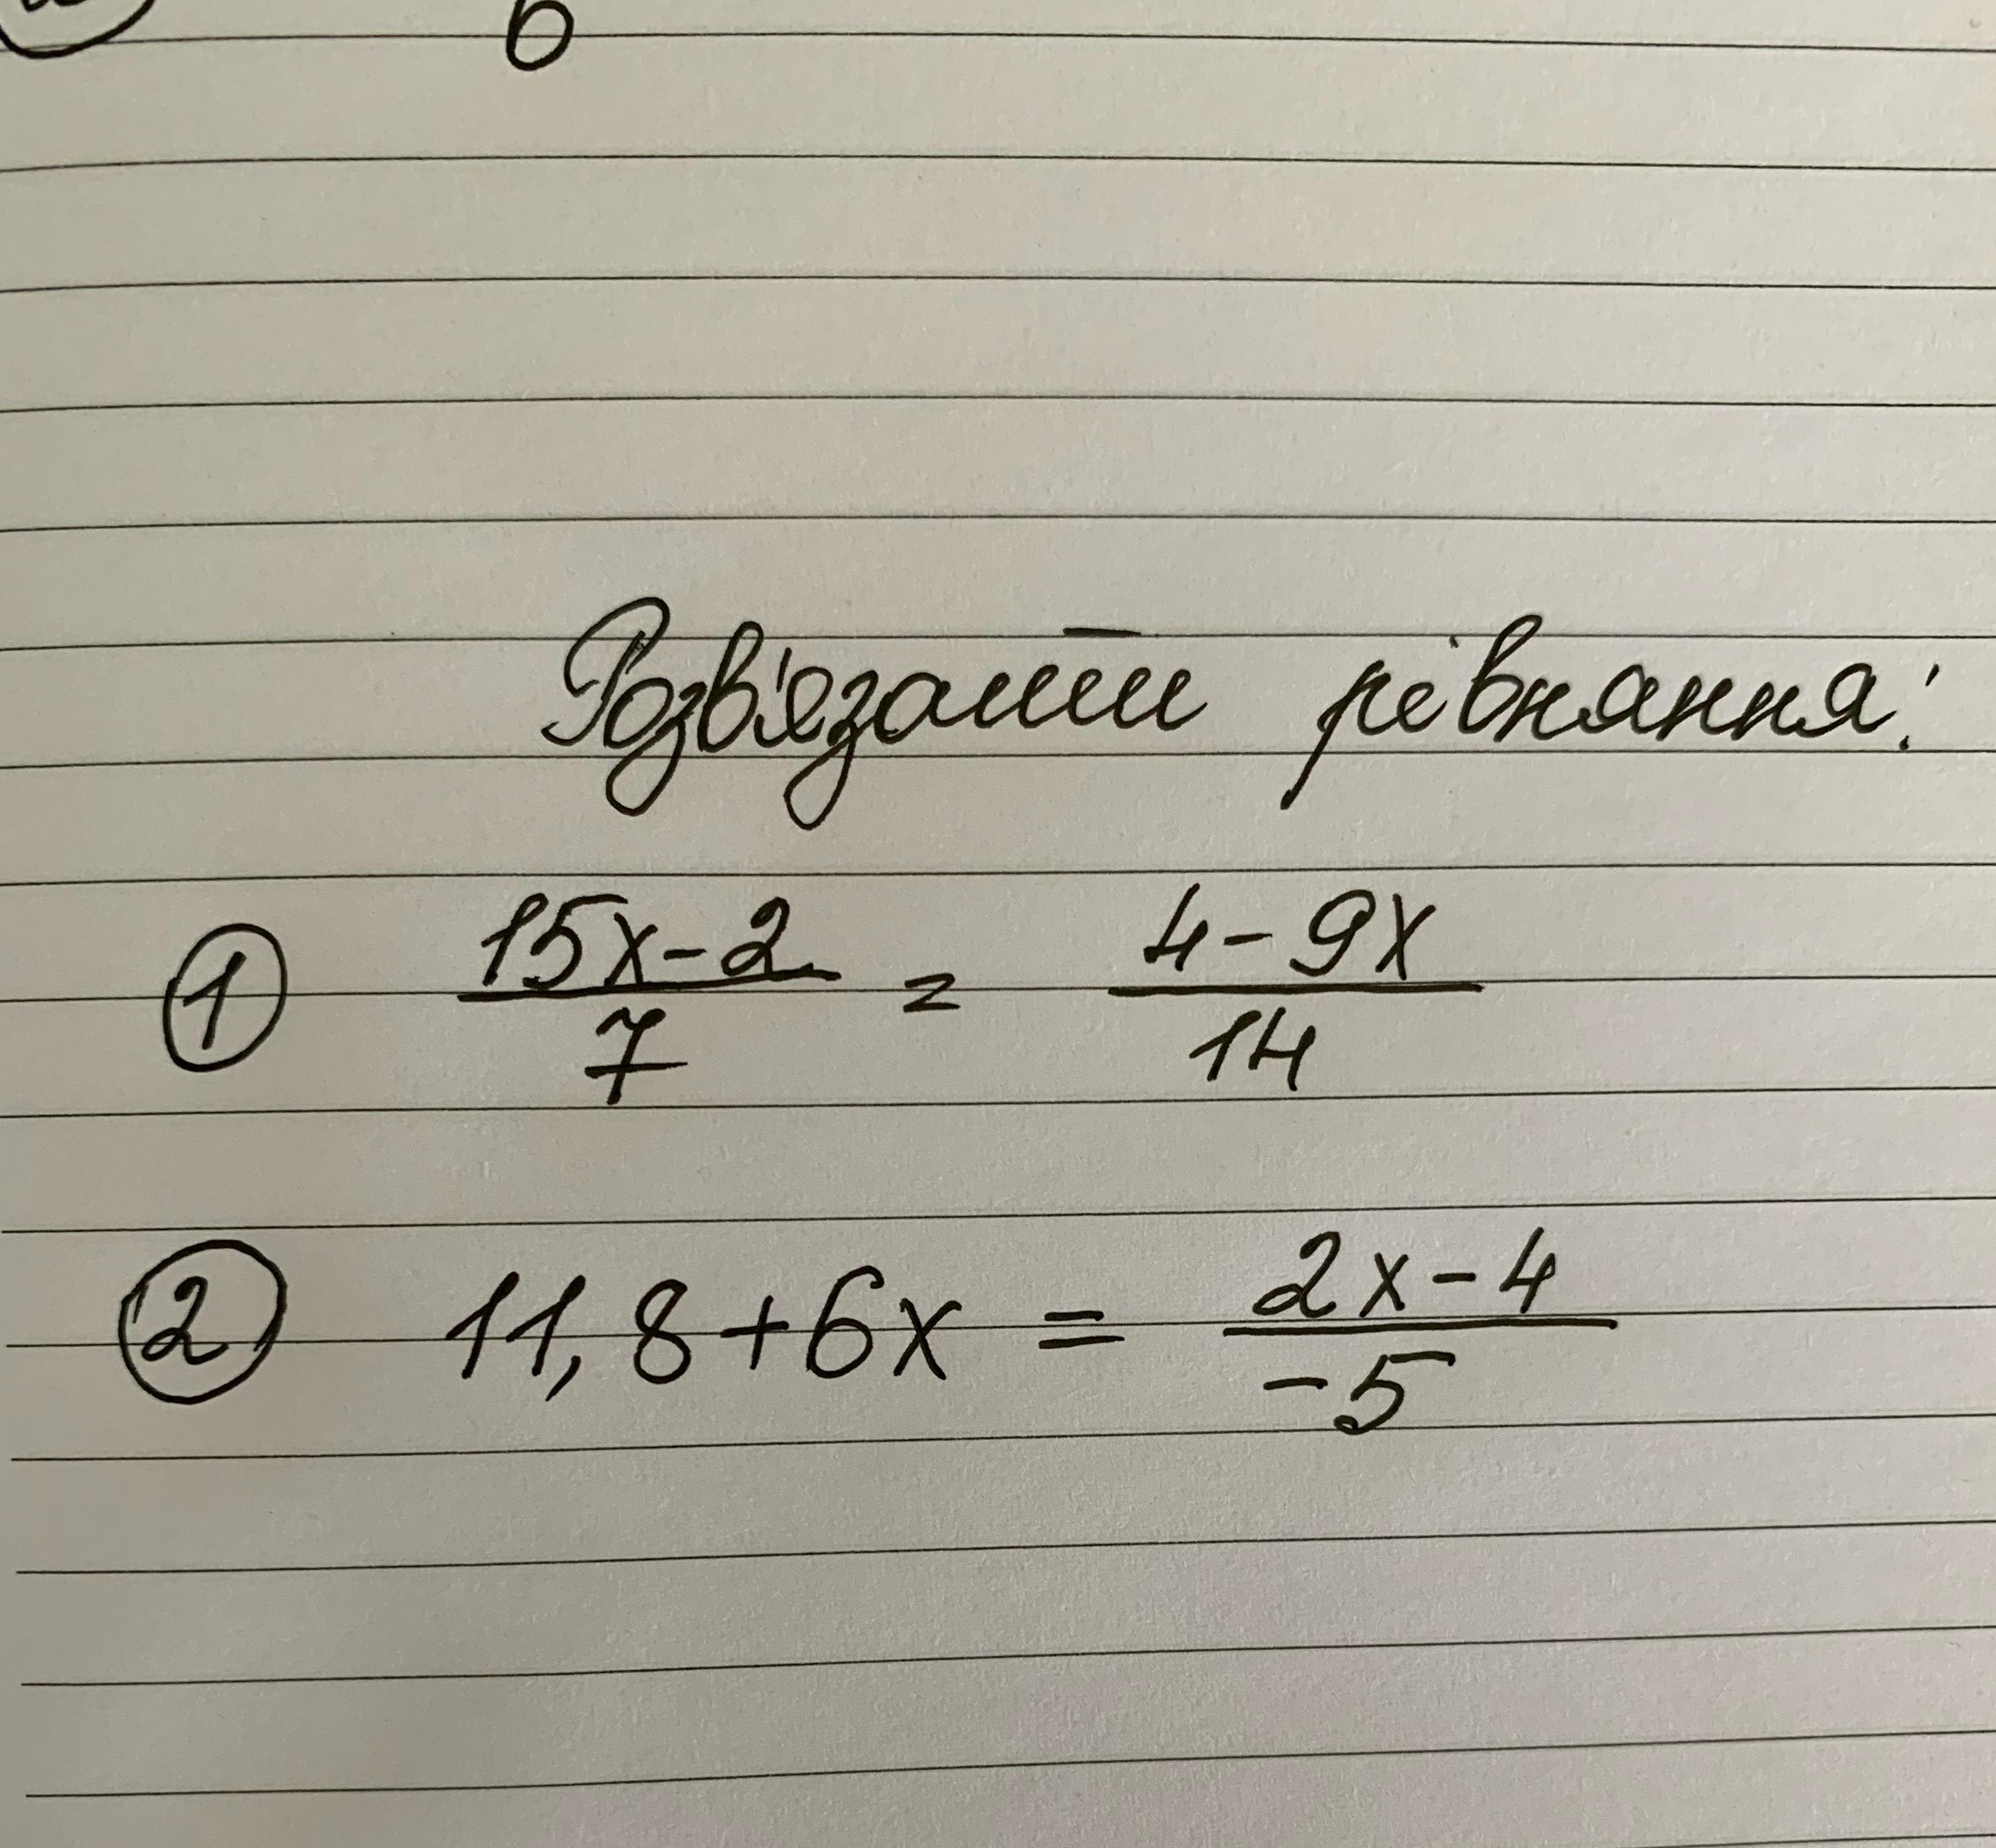 6
Розв'язати рівняння:
① 15x-2/7 = 4-9x/14
② 11,8+6x = 2x-4/-5